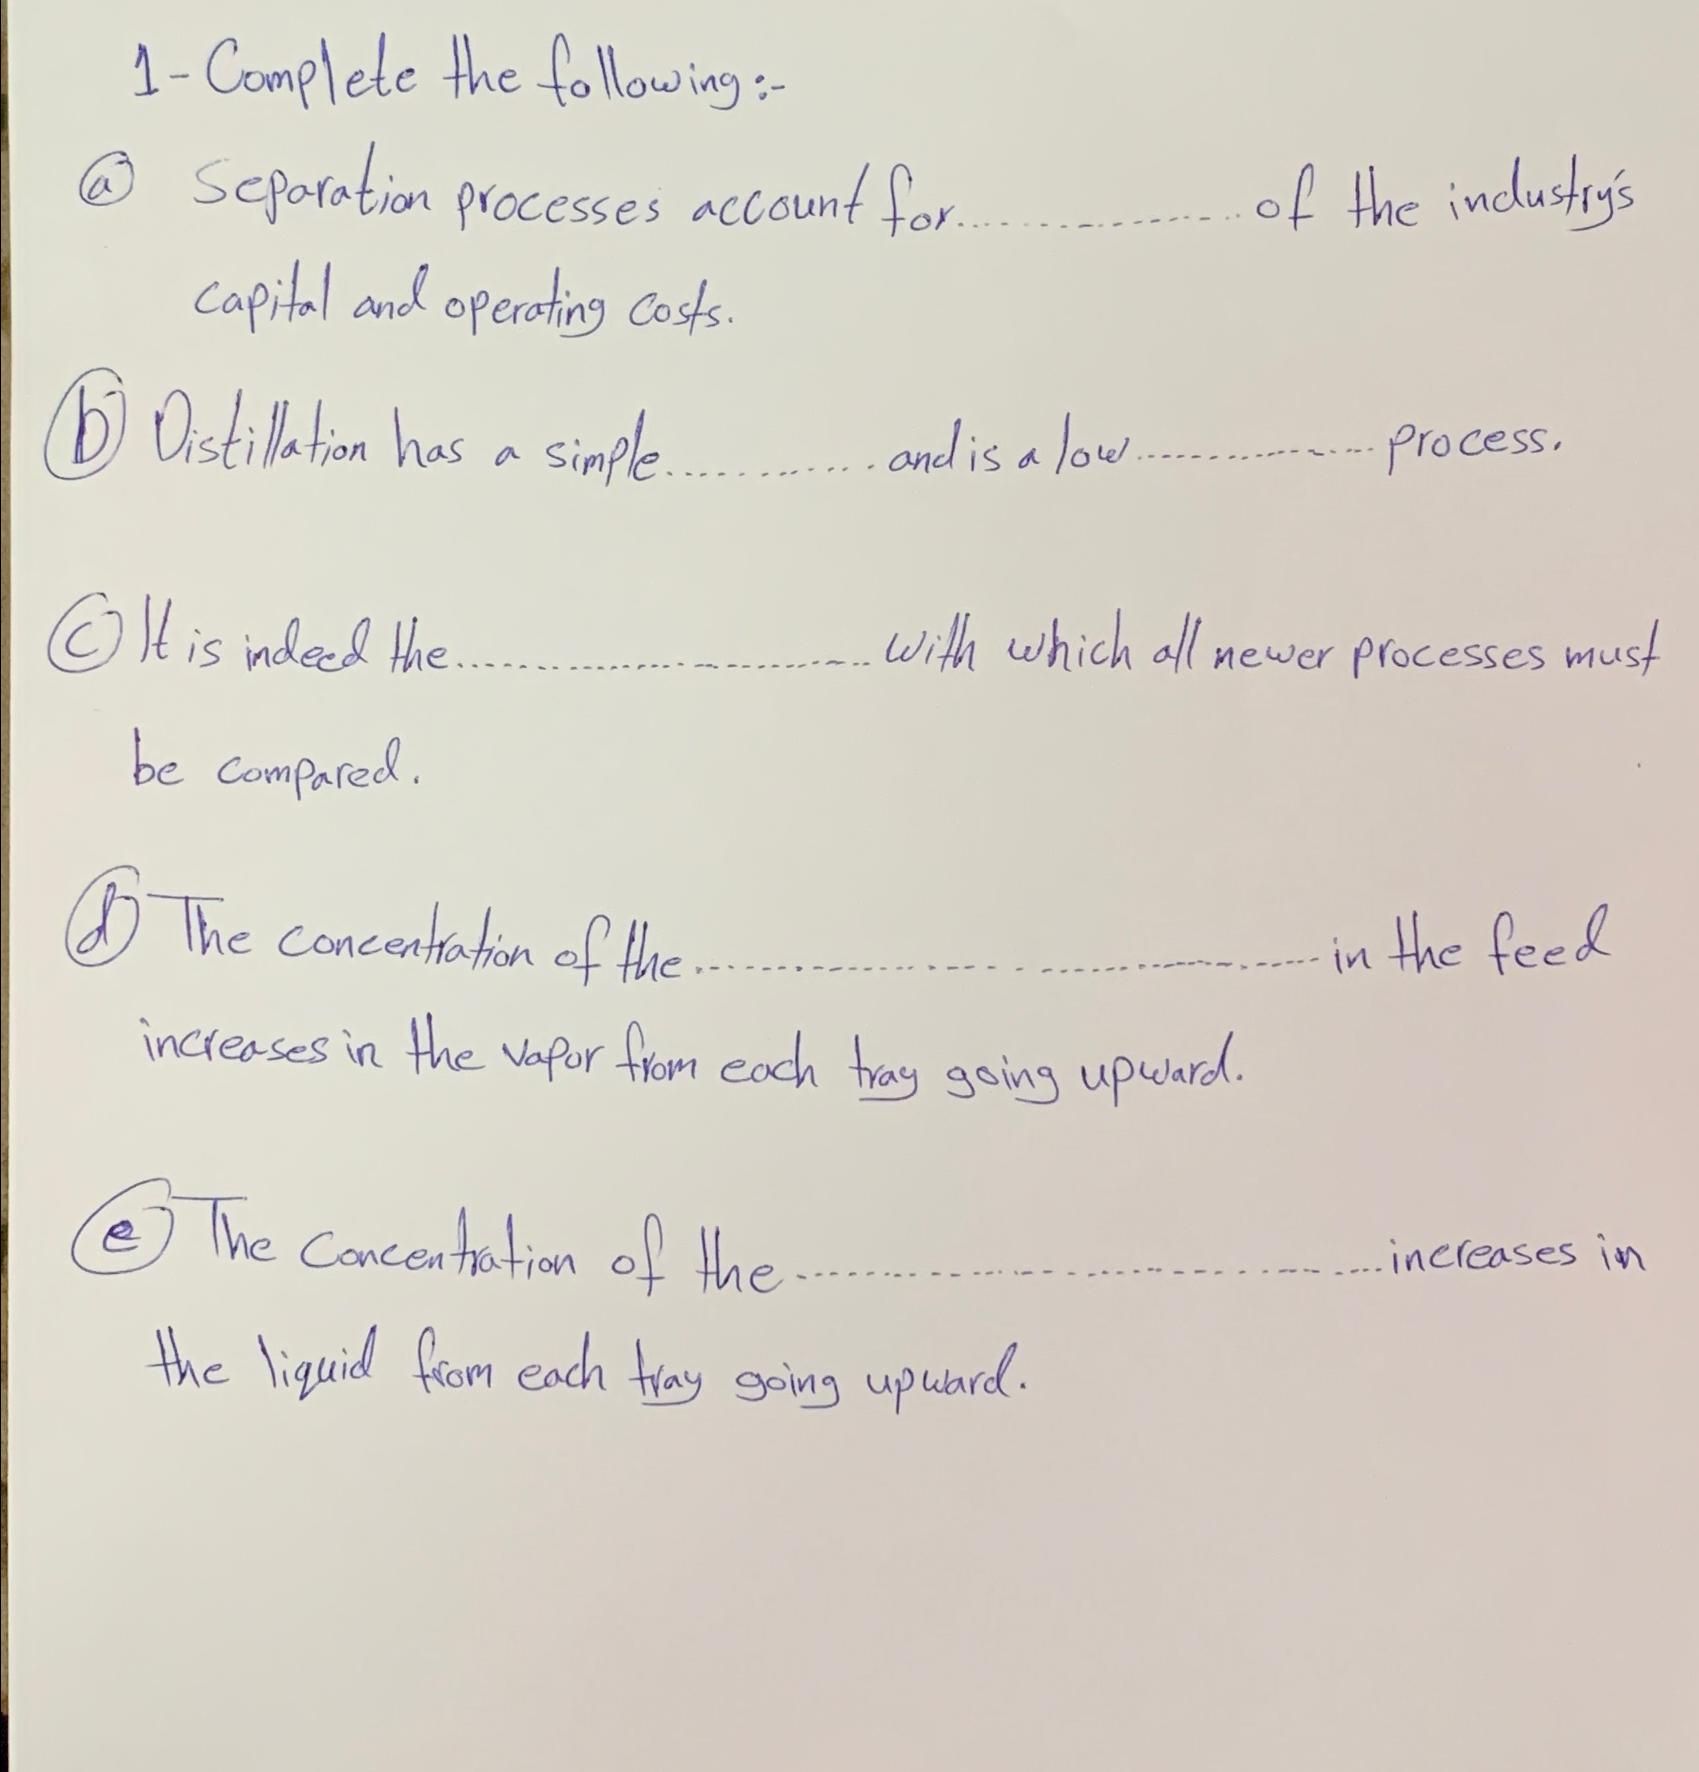 1- Complete the following :-
ⓐ Separation processes account for............... of the industry's
capital and operating costs.
ⓑ Distillation has a simple............ and is a low............... process.
ⓒ It is indeed the........................ with which all newer processes must
be compared.
ⓓ The concentration of the.................................. in the feed
increases in the vapor from each tray going upward.
ⓔ The concentration of the.................................. increases in
the liquid from each tray going upward.